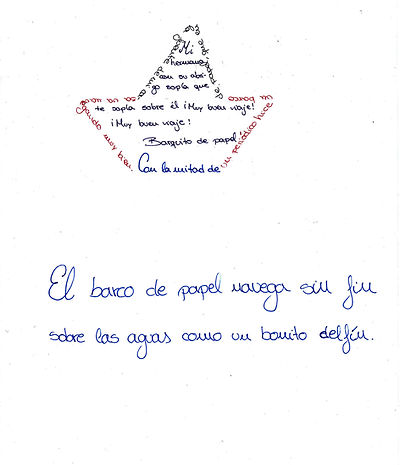 Mi
hermana
con su abri
go sopla que
te sopla sobre él ¡Muy buen viaje!
¡Muy buen viaje!
Barquito de papel
Con la mitad de
un periódico hice
un barco
de papel
gando muy bien.
El barco de papel navega sin fin
sobre las aguas como un bonito delfín.